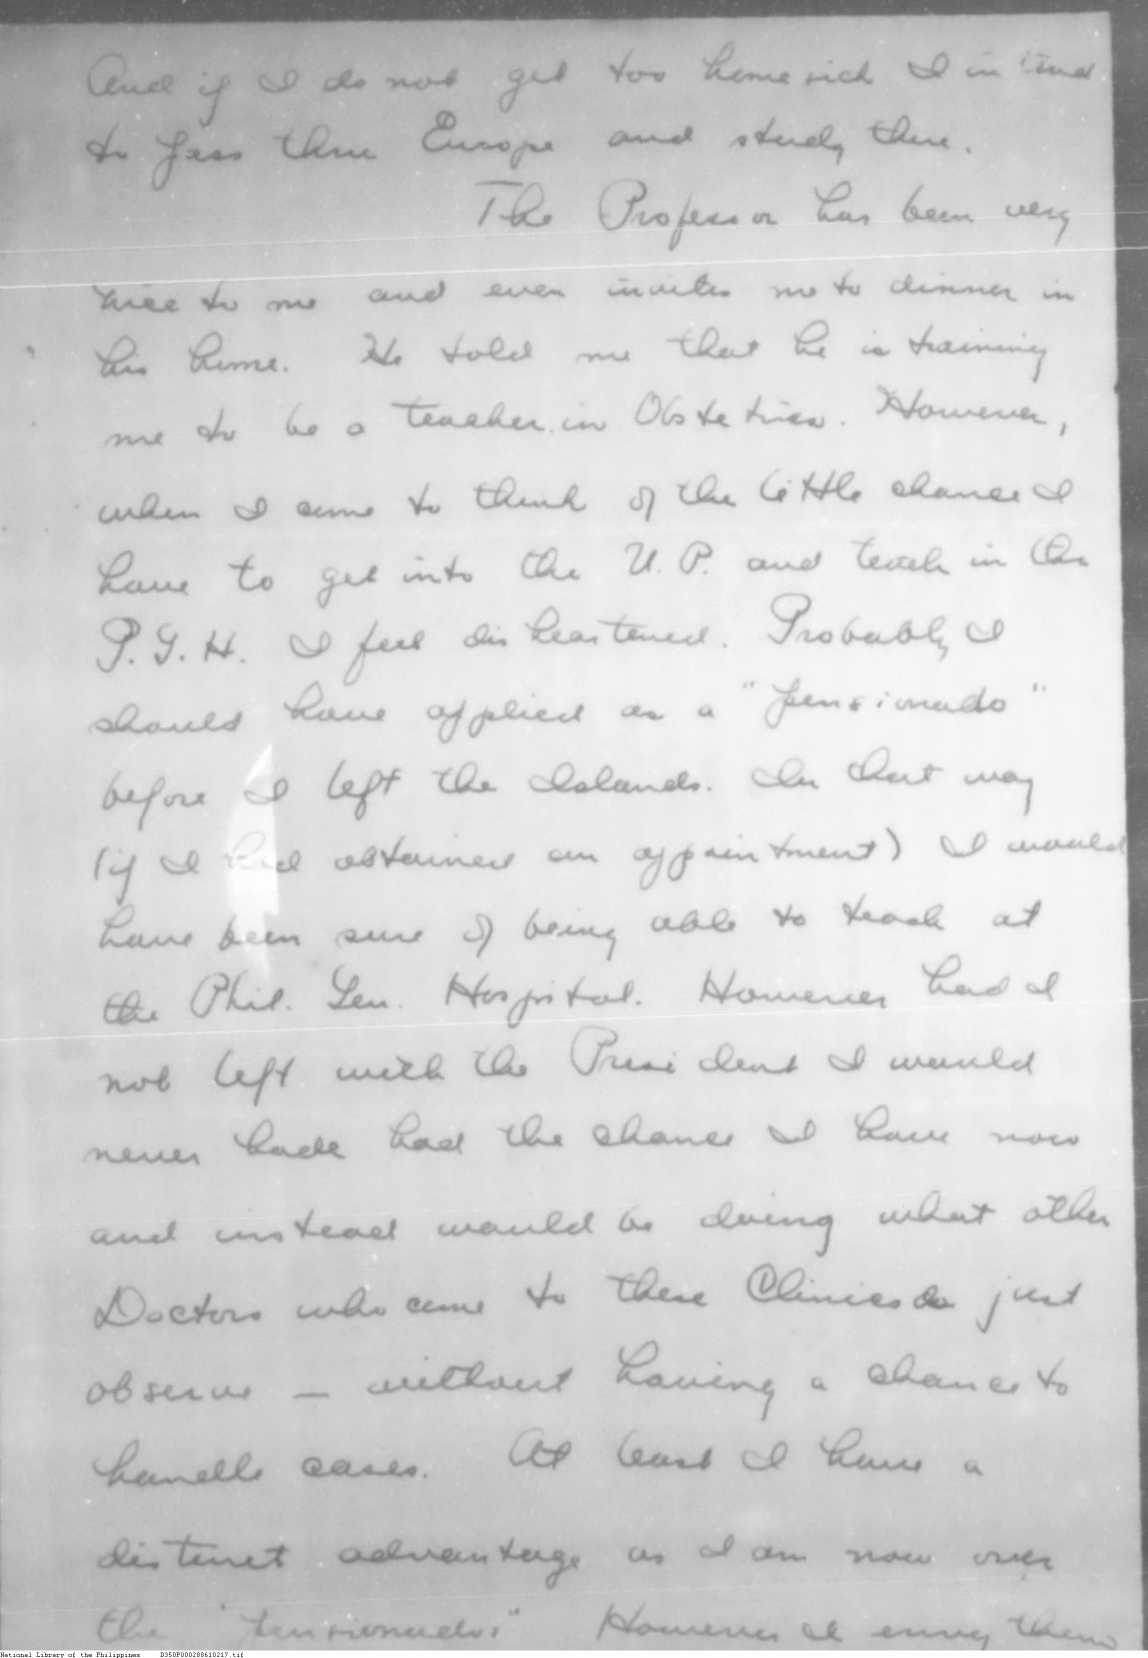 And if I do not get too home sick I intend
to pass thru Europe and study there.
The Professor has been very
nice to me and even invites me to dinner in
his home. He told me that he is training
me to be a teacher in Obstetrics. However,
when I come to think of the little chance I
have to get into the U. P. and teach in the
P. G. H. I feel disheartened. Probably I
should have applied as a "pensionado"
before I left the Islands. In that way
(if I had obtained an appointment) I would
have been sure of being able to teach at
the Phil. Gen. Hospital. However had I
not left with the President I would
never have had the chance I have now
and instead would be doing what other
Doctors who come to these Clinics do just
observe — without having a chance to
handle cases. At least I have a
distinct advantage as I am now over
the "pensionados" However I envy them
National Library of the Philippines D350P000288610217.tif